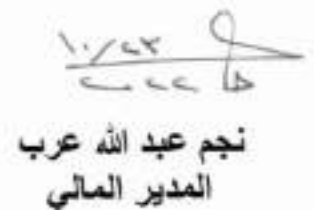 ١٠/٢٣
نجم عبد الله عرب
المدير المالي